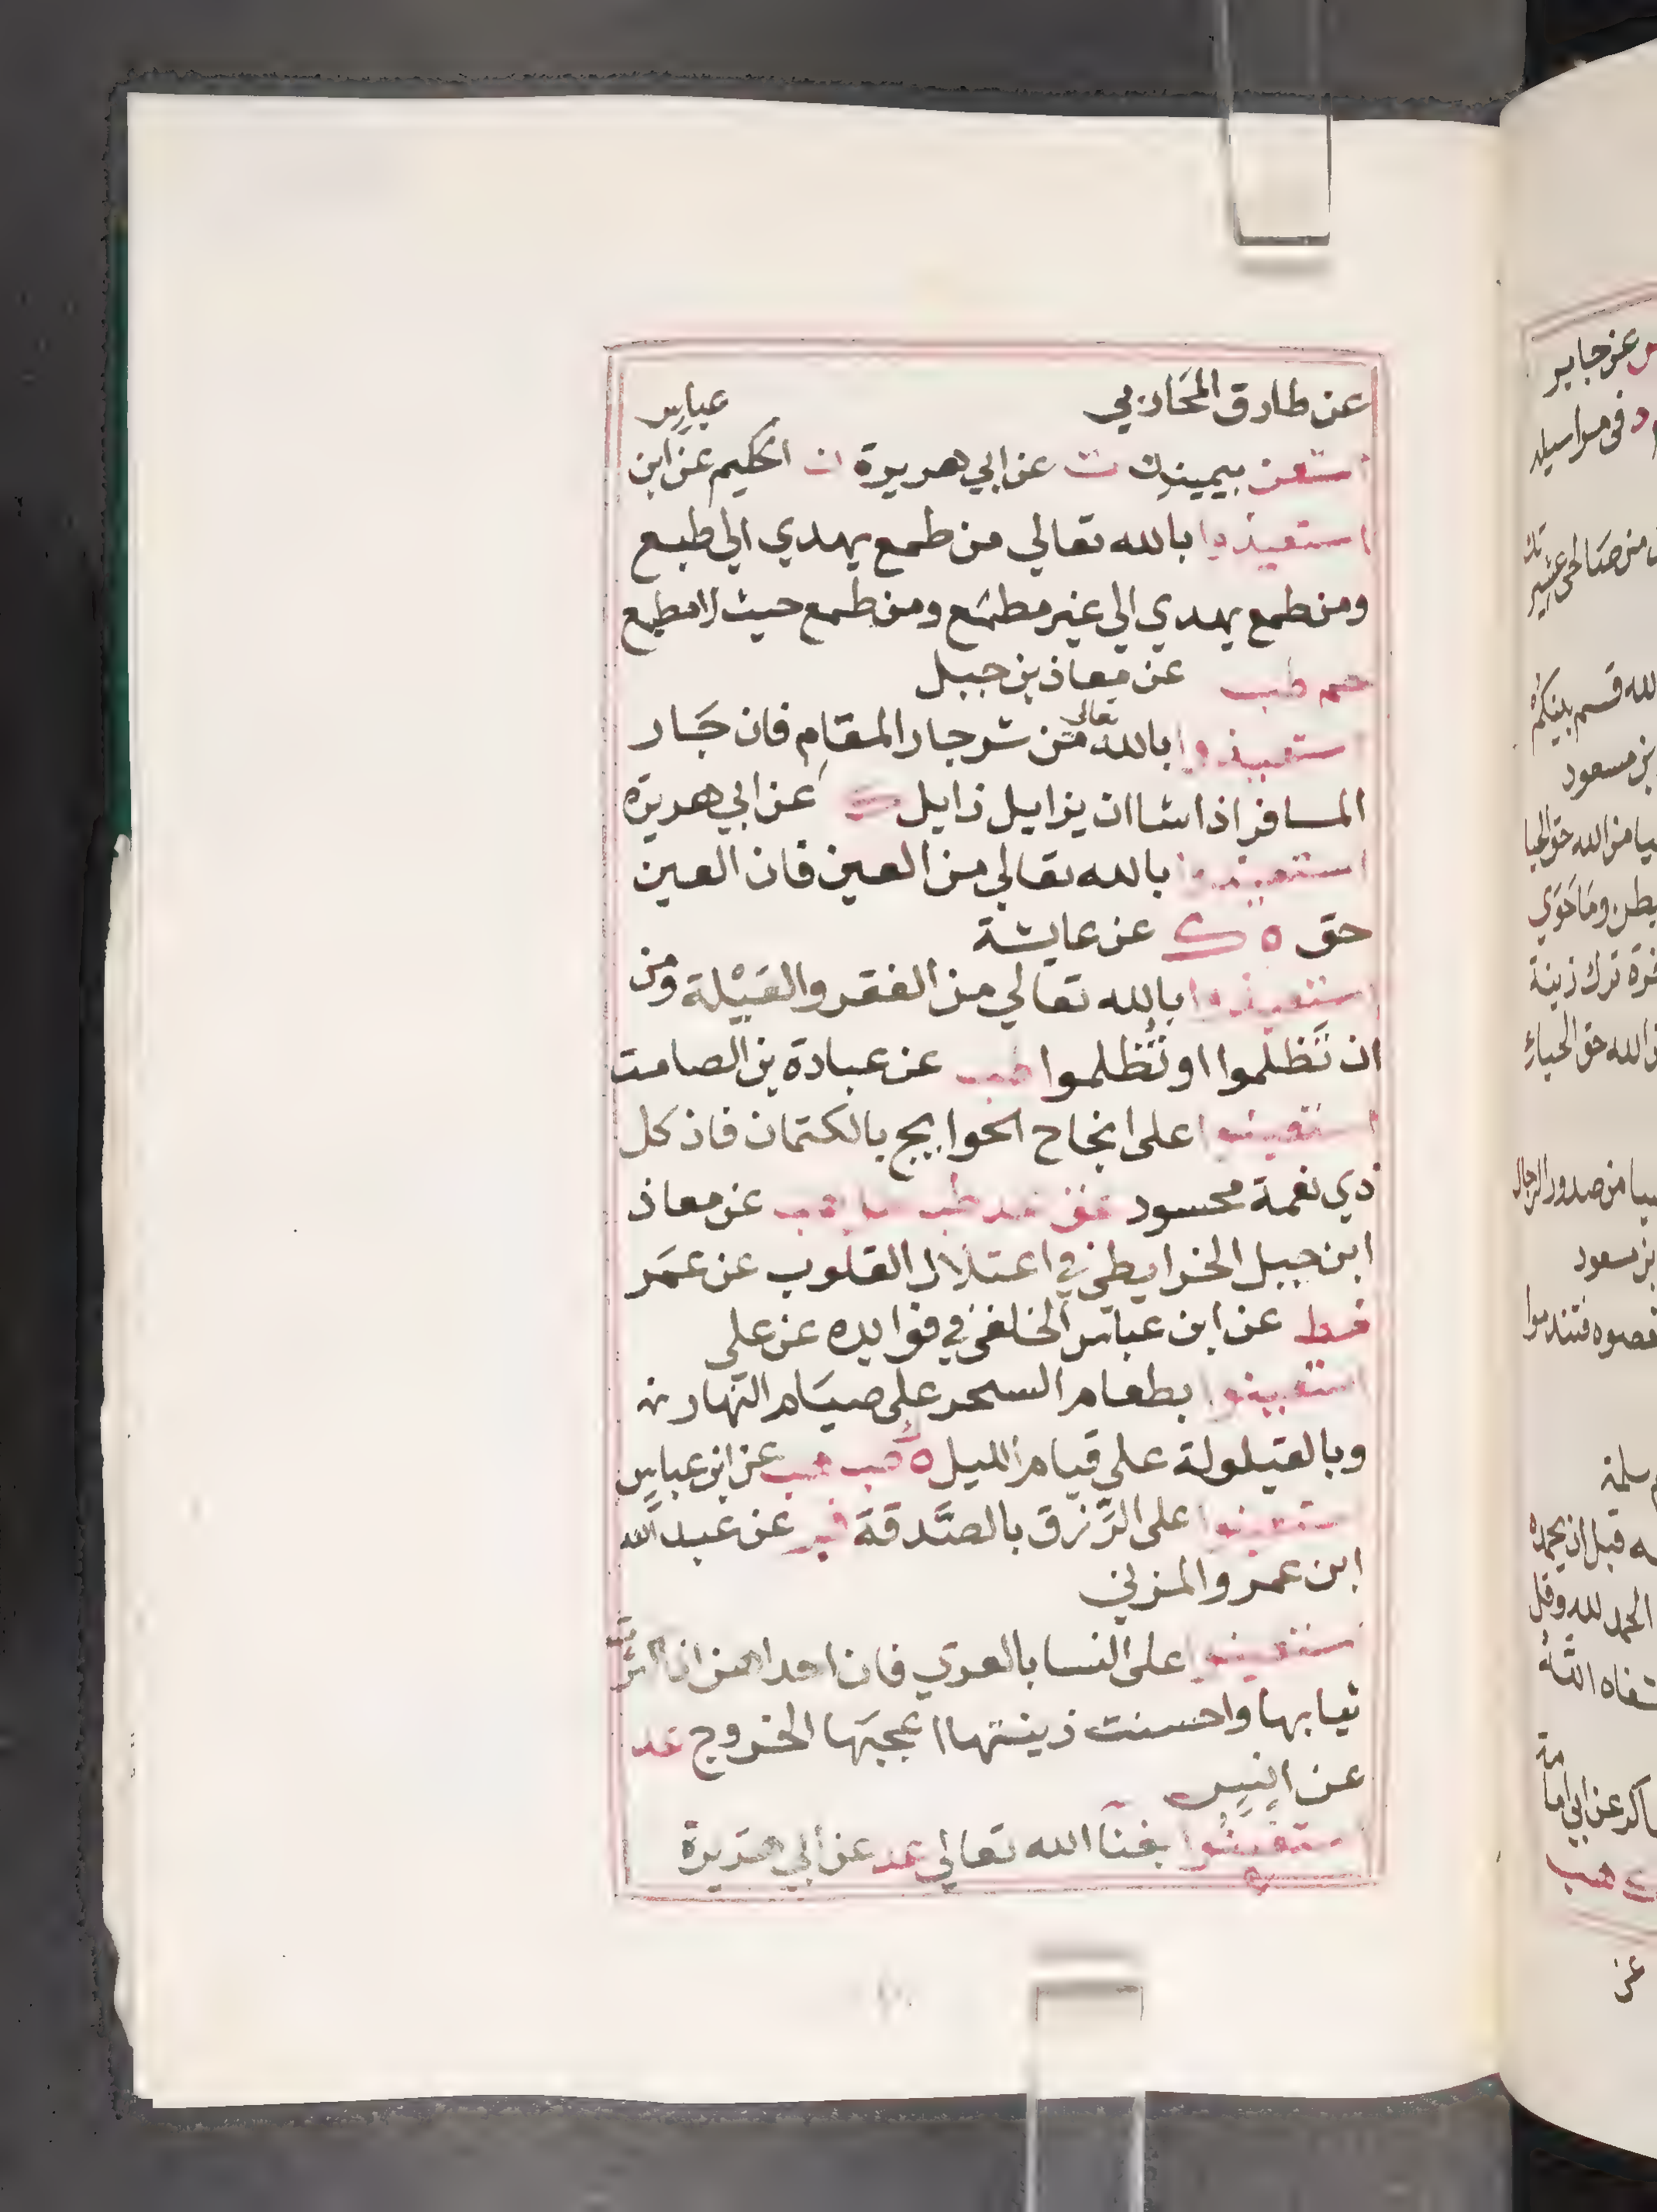 عن طارق المحَاربي
استعن بيمينك ت عن ابي هريرة ن الحكيم عن ابن عباس
استعيذوا بالله تعالي من طمع يهدي الي طبع
ومن طمع يهدي الي غير مطمَع ومن طمع حيث لا مطمع
حم طب عن معاذ بن جبل
استعيذوا بالله تعالي من شر جار المقام فان جَار
المسافر اذا شاان يزايل زايل ك عن ابي هريرة
استعيذوا بالله تعالي من العين فان العين
حق ه ك عن عايشة
استعيذوا بالله تعالي من الفقر والعَيْلة ومن
ان تَظلموا او تُظلموا طب عن عبادة بن الصامت
استعينوا علي انجاح الحوايج بالكتمان فان كل
ذي نعمة محسود عق عد طب حل هب عن معاذ
ابن جبل الخرايطي في اعتلال القلوب عن عمَر
خط عن ابن عباس الخلعي في فوايده عن علي
استعينوا بطعام السحر علي صيَام النهار
وبالقيلولة علي قيام الليل ه ك طب هب عن ابن عباس
استعينوا علي الرّزق بالصَّدقة فر عن عبد الله
ابن عمرو المزني
استعينوا علي النسا بالعري فان احداهن اذا كثرت
ثيابها واحسنت زينتها اعجبَها الخروج عد
عن انس
استغنُوا بغنَآ الله تعالي عد عن ابي هرَيرة
عن جابر
د في مراسيله
الله قسم بينكم
بن مسعود
من الله حق الحيا
ومَا حَوَي
ترك زينة
الله حق الحياء
من صدور الرجال
بن مسعود
فتندموا
سلمة
قبل ان يحمده
الحمد لله وقل
عن ابي امامة
ك هب
عن